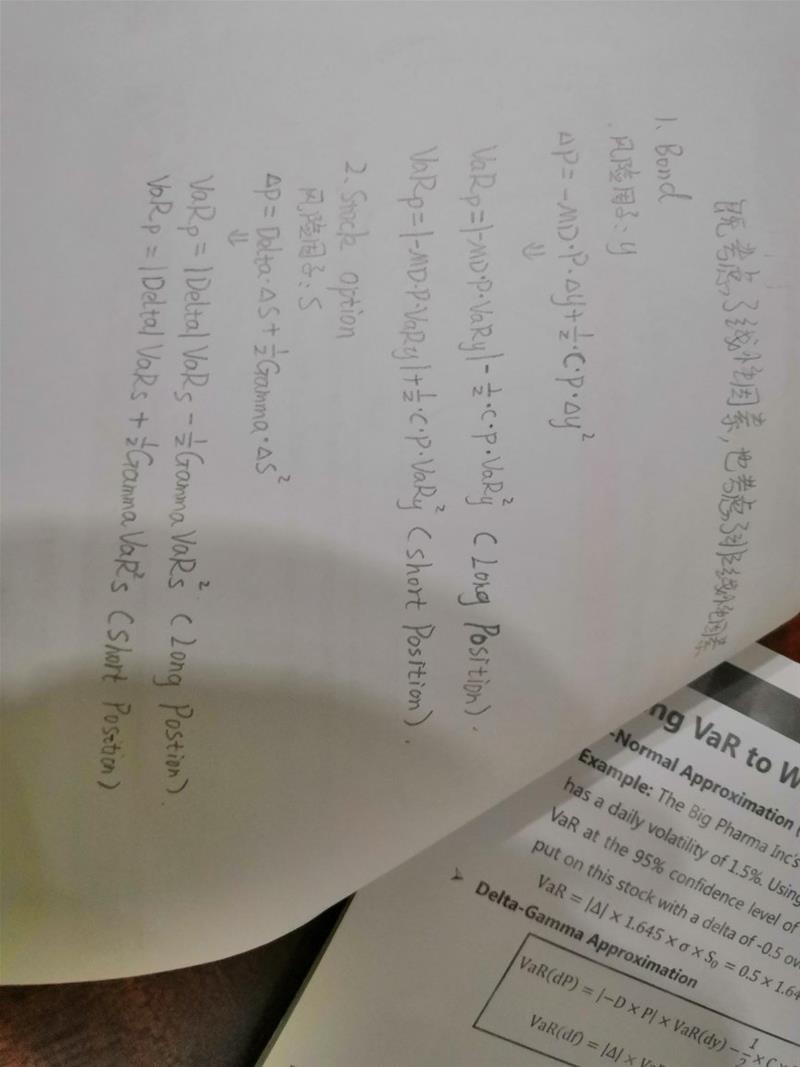 既考虑了线性因素,也考虑了非线性因素
1. Bond
风险因子:y
ΔP=-MD·P·Δy+½·C·P·Δy²
⇓
VaRp=|-MD·P·VaRy|-½·C·P·VaRy² (Long Position).
VaRp=|-MD·P·VaRy|+½·C·P·VaRy² (short Position).
2. Stock option
风险因子:S
ΔP=Delta·ΔS+½Gamma·ΔS²
⇓
VaRp=|Delta|VaRs-½GammaVaRs² (Long Postion).
VaRp=|Delta|VaRs+½GammaVaR²s (Short Position)
ng VaR to W
-Normal Approximation
Example: The Big Pharma Inc's
has a daily volatility of 1.5%. Using
VaR at the 95% confidence level of
put on this stock with a delta of -0.5 ov
VaR = |Δ| × 1.645 × σ × S₀ = 0.5 × 1.64
➢ Delta-Gamma Approximation
VaR(dP) = |-D × P| × VaR(dy) - ½ × C ×
VaR(df) = |Δ| × Va